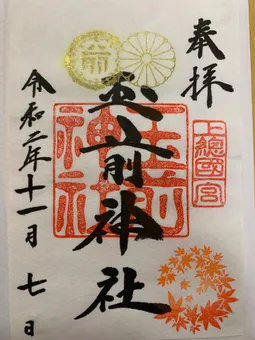 奉拝
上總國一宮
玉前神社
玉前神社
令和二年十一月七日